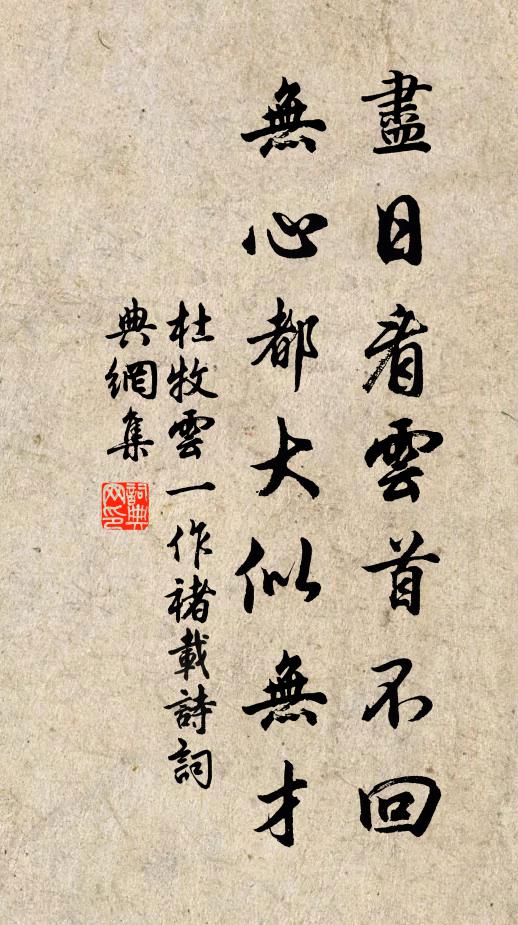 盡日看雲首不回
無心都大似無才
杜牧雲一作褚載詩詞
典網集
詞典
网印